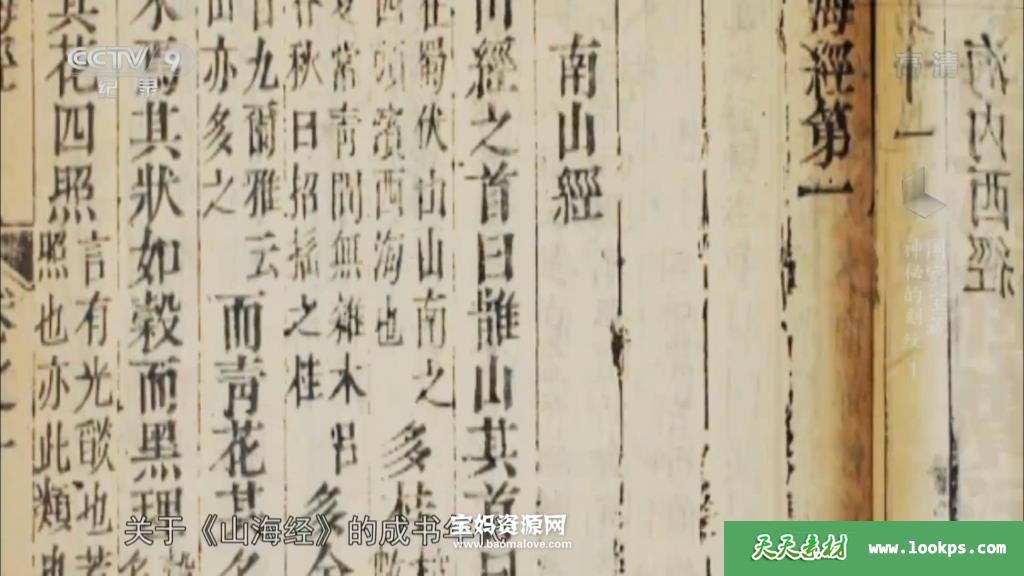 海内西經
海經第一
南山經
山經之首曰䧿山其首曰
在蜀伏山山南之
西頭濱西海也
多桂
常青間無雜木
呂
多金
春秋曰招搖之桂
九爾雅云
山亦多之
而青花其名
木焉其狀如榖而黑理
其花四照
言有光燄地若
照也亦此類也
CCTV 9
纪录
高清
神秘的刻纹 1
关于《山海经》的成书年
宝妈资源网
www.baomalove.com
天天素材 www.lookps.com